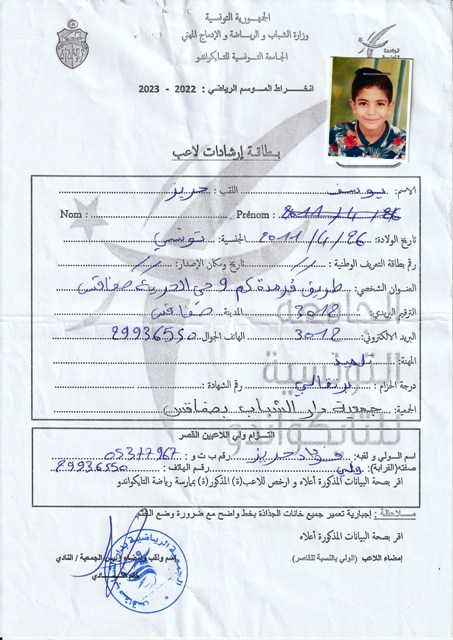 الجمهورية التونسية
وزارة الشباب و الرياضة و الإدماج المهني
الجامعة التونسية للتايكواندو
انخراط الموسم الرياضي : 2022 - 2023
بطاقة إرشادات لاعب
الاسم: يوسف اللقب : حريز
Nom : Prénom : 2011/4/26
تاريخ الولادة: 2011/4/26 الجنسية: تونسي
رقم بطاقة التعريف الوطنية : // تاريخ ومكان الإصدار: //
العنوان الشخصي: طريق قرمدة كم 9 حي الحريقة صفاقس
الترقيم البريدي: 3012 المدينة صفاقس
البريد الالكتروني: 3012 الهاتف الجوال 29936550
المهنة: تلميذ
درجة الحزام : برتقالي رقم الشهادة:
الجمعية: جمعية دار الشباب بصفاقس
التزام ولي اللاعبين القصر
اسم الولي و لقبه: فؤاد حريز رقم ب ت و : 05377967
صفته(القرابة): ولي رقم الهاتف : 29936550
اقر بصحة البيانات المذكورة أعلاه و ارخص للاعب(ة) المذكور(ة) بممارسة رياضة التايكواندو
ملاحظة : إجبارية تعمير جميع خانات الجذاذة بخط واضح مع ضرورة وضع الختم
اقر بصحة البيانات المذكورة أعلاه
إمضاء اللاعب (الولي بالنسبة للقاصر) اسم ولقب وإمضاء رئيس الجمعية / النادي